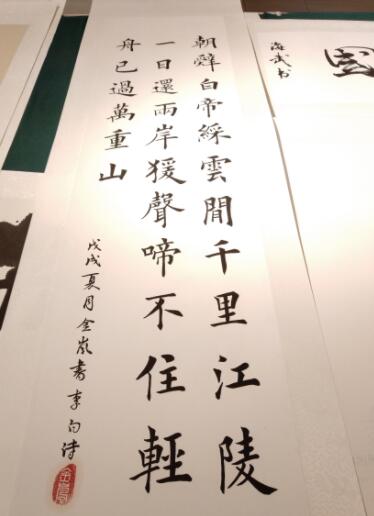 朝辭白帝綵雲間千里江陵
一日還兩岸猨聲啼不住輕
舟已過萬重山
戊戌夏月金嵐書李白詩
國
海武書